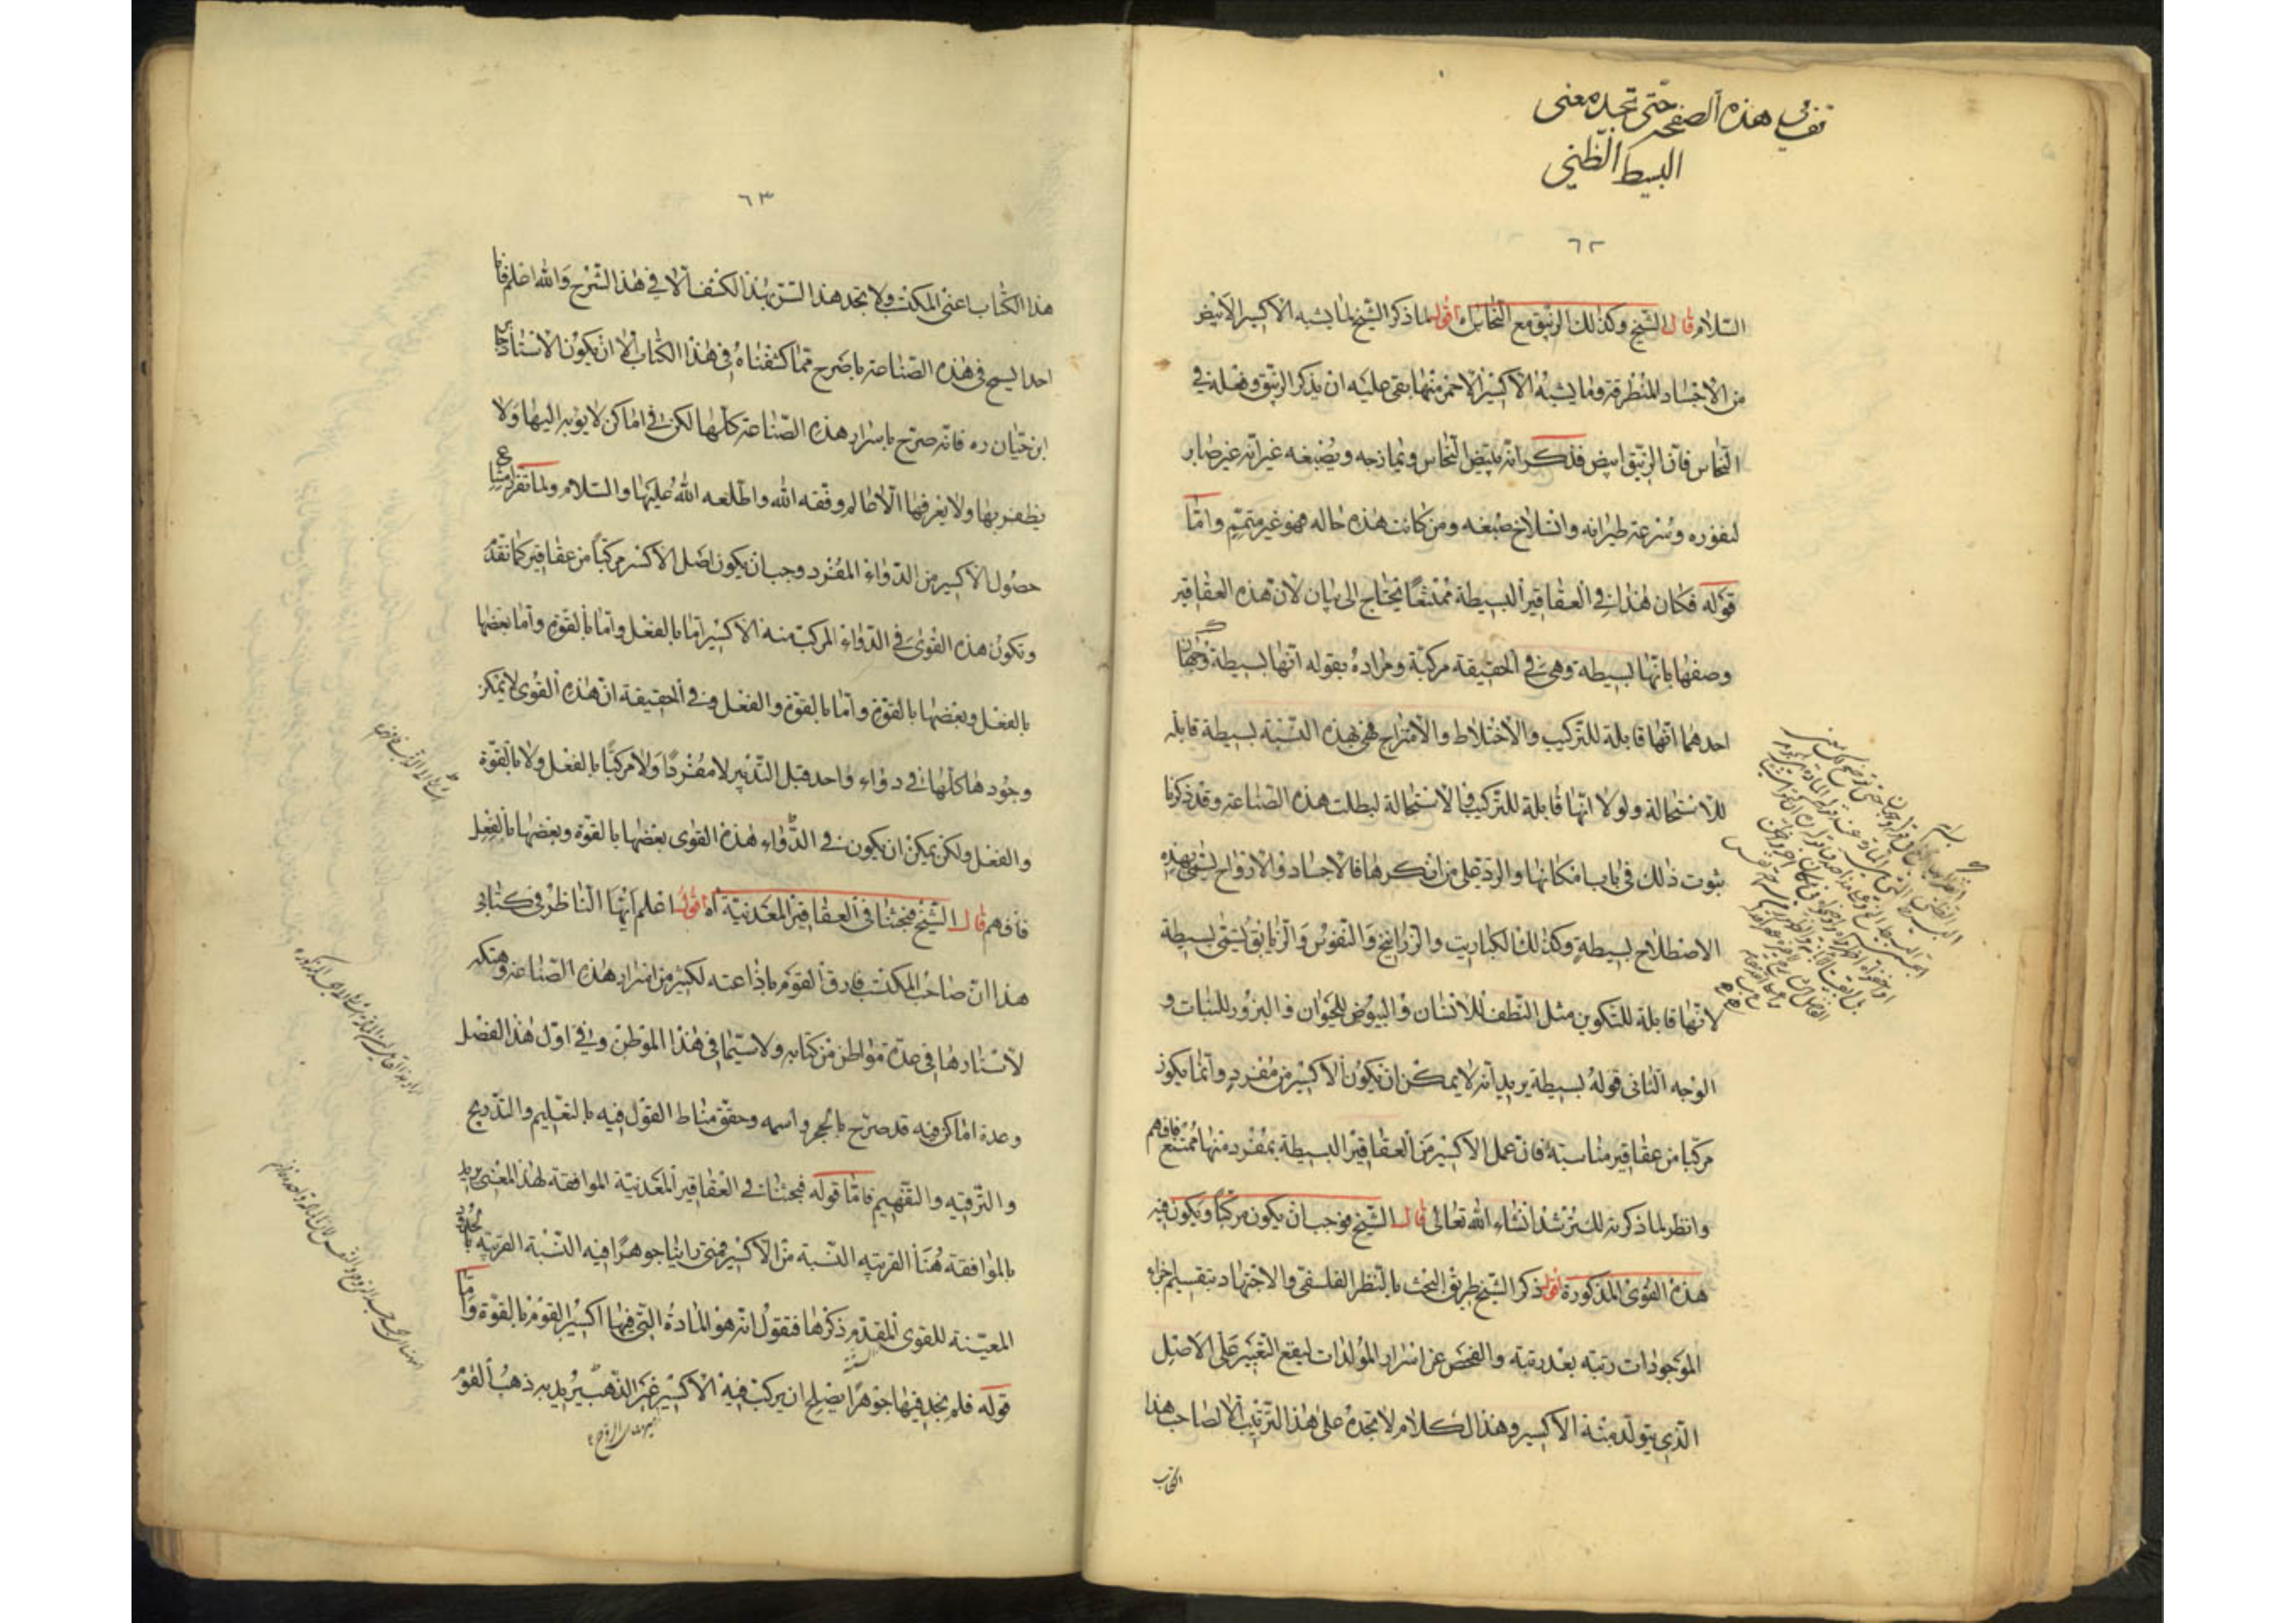 هذه الصفحه حتى تجد معنى
البسيط الظني
٦٢
السّلام قال الشّيخ وكذلك الزيبق مع النّحاس اقول لما ذكر الشّيخ لما يشبه الاكسير الابيض
من الاجساد المنطرقة وما يشبه الاكسير الاحمر منها بقى عليه ان يذكر الزيبق وفعله في
النّحاس فانّ الزيبق ابيض فذكر انّه يبيّض النّحاس ويمازجه ويصبغه غير انّه غير صابر
لنفوره وسُرعة طيرانه وانسلاخ صبغه ومن كانت هذه حاله فهو غير متمّم وامّا
قوله فكان هذا في العقاقير البسيطة ممتنعاً يحتاج الى بيان لانّ هذه العقاقير
وصفها بانّها بسيطة وهي في الحقيقة مركّبة ومراده بقوله انّها بسيطة وجهان
احدهما انّها قابلة للتركيب والاختلاط والامتزاج فهى بهذه النّسبة بسيطة قابله
للاستحالة ولولا انّها قابلة للتركيب والاستحالة لبطلت هذه الصّناعة وقد ذكرنا
ثبوت ذلك في باب امكانها والردّ على من انكرها فالاجساد والارواح تسمّى بهذه
الاصطلاح بسيطة وكذلك الكباريت والزرانيخ والنفوس والزيابق تسمّى بسيطة
لانّها قابلة للتكوين مثل النّطف للانسان والبيوض للحيوان والبزور للنبات و
الوجه الثانى قوله بسيطة يريد انّه لا يمكن ان يكون الاكسير من مفرد وانّما يكون
مركبا من عقاقير مناسبة فانّ عمل الاكسير من العقاقير البسيطة بمفرد منها ممتنع فافهم
وانظر لما ذكرته لك ترشد انشاء الله تعالى قال الشّيخ فوجب ان يكون مركّباً ويكون فيه
هذه القوى المذكورة اقول ذكر الشّيخ طريق البحث بالنّظر الفلسفى والاجتهاد بتقسيم اجزاء
الموجودات رتبه بعد رتبة والفحص عن اسرار المولدات ليقع التعبير على الاصل
الّذى يتولّد منه الاكسير وهذا الكلام لا تجده على هذا الترتيب الا لصاحب هذا
الكتاب
٦٣
هذا الكتاب اعنى المكتسب ولا تجد هذا السّر بهذا الكشف الّا في هذا الشّرح والله اعلم فانّا
احدا لم يسمح في هذه الصّناعة باصرح ممّا كشفناه في هذا الكتاب الّا ان يكون الاستاذ جابر
ابن حيّان ره فانّه صرّح باسرار هذه الصّناعة كلّها لكن في اماكن لا يوبه اليها ولا
يظفر بها ولا يعرفها الّا عالم وفّقه الله واطلعه الله عليها والسّلام ولما تقرر امتناع
حصول الاكسير من الدّواء المفرد وجب ان يكون اصل الاكسير مركّباً من عقاقير كما تقدّم
وتكون هذه القوى في الدّواء المركب منه الاكسير امّا بالفعل وامّا بالقوّة وامّا بعضها
بالفعل وبعضها بالقوّة وامّا بالقوّة والفعل وفي الحقيقة انّ هذه القوى لا يمكن
وجودها كلّها في دواء واحد قبل التّدبير لا مفرداً ولا مركّباً بالفعل ولا بالقوّة
والفعل ولكن يمكن ان يكون في الدّواء هذه القوى بعضها بالقوّة وبعضها بالفعل
فافهم قال الشّيخ فبحثنا في العقاقير المعدنيّة آه اقول اعلم ايّها النّاظر في كتابى
هذا انّ صاحب المكتسب فارق القوم باذاعته لكثير من اسرار هذه الصّناعة وهتكه
لاستارها في عدّة مواطن من كتابه ولا سيّما في هذا الموطن وفي اوّل هذا الفصل
وعدة اماكن فيه قد صرّح بالحجر واسمه وحقّق مناط القول فيه بالتعليم والتدريج
والترقيه والتفهيم فامّا قوله فبحثنا في العقاقير المعدنيّة الموافقة لهذا المعنى يريد
بالموافقة هُنا القريبة النّسبة من الاكسير فمتى راينا جوهرا فيه النّسبة القريبه بالحدود
المعيّنة للقوى المقدّم ذكرها فنقول انّه هو المادة التى فيها اكسير القوم بالقوّة وامّا
قوله فلم نجد فيها جوهراً يصلح ان يركب فيه الاكسير غير الذّهب يريد به ذهب القوم